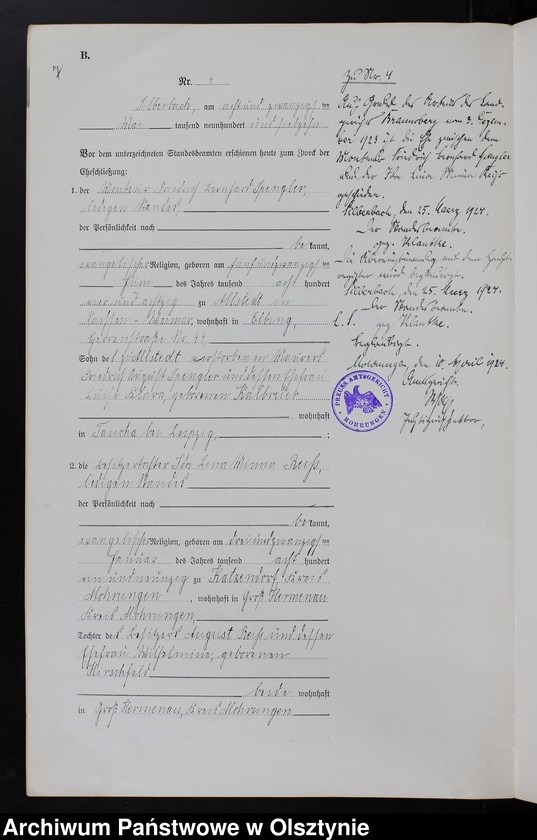 B.
Nr. 4
Silberbach, am acht und zwanzigsten
Mai tausend neunhundert und siebzehn
Vor dem unterzeichneten Standesbeamten erschienen heute zum Zweck der
Eheschließung:
1. der Monteur Friedrich Bernhard Spengler,
ledigen Standes,
der Persönlichkeit nach
be kannt,
evangelischer Religion, geboren am fünfundzwanzigsten
Juni des Jahres tausend acht hundert
vier und achtzig zu Allstedt in
Sachsen-Weimar, wohnhaft in Elbing,
Herrenstraße Nr. 44,
Sohn des zu Allstedt verstorbenen Maurers
Friedrich August Spengler und dessen Ehefrau
Luise Klara, geborenen Kalbreiter
wohnhaft
in Taucha bei Leipzig, ;
2. die Besitzertochter Ida Lina Minna Reiß,
ledigen Standes
der Persönlichkeit nach
be kannt,
evangelischer Religion, geboren am dreiundzwanzigsten
Januar des Jahres tausend acht hundert
ein und neunzig zu Katzendorf, Kreis
Mohrungen, wohnhaft in Groß Hermenau,
Kreis Mohrungen,
Tochter des Besitzers August Reiß und dessen
Ehefrau Wilhelmine, geborenen
Hirschfeld
beide wohnhaft
in Groß Hermenau, Kreis Mohrungen
Zu Nr. 4
Auf Grund des Urteils des Land-
gerichts Braunsberg vom 3. Dezem-
ber 1923 ist die Ehe zwischen dem
Monteur Friedrich Bernhard Spengler
und der Ida Lina Minna Reiß
geschieden.
Silberbach, den 25. Maerz 1924.
Der Standesbeamte.
gez. Klautke.
Die Übereinstimmung mit dem Haupt-
register wird beglaubigt.
Silberbach, den 25. Maerz 1924.
Der Standesbeamte.
L. S. gez. Klautke.
Beglaubigt.
Mohrungen, den 10. April 1924.
Amtsgericht.
Justizinspektor.
PREUSS. AMTSGERICHT
MOHRUNGEN
Archiwum Państwowe w Olsztynie